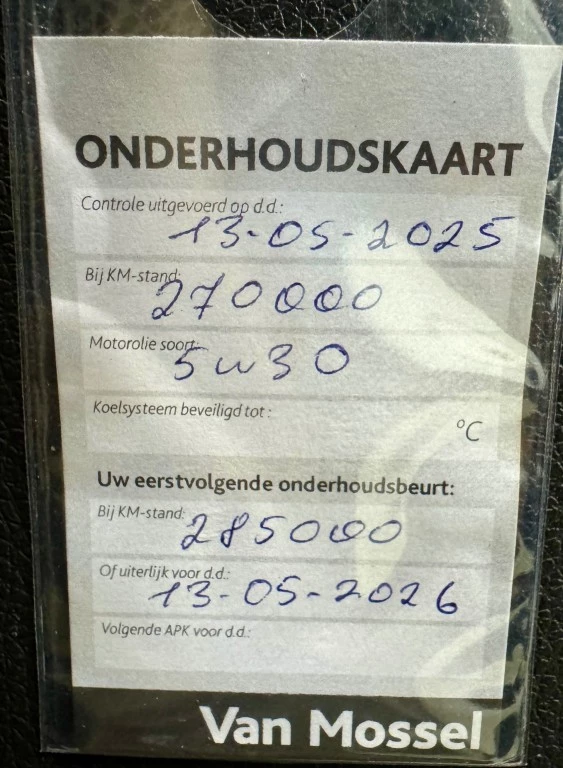 ONDERHOUDSKAART
Controle uitgevoerd op d.d.:
13-05-2025
Bij KM-stand:
270000
Motorolie soort:
5w30
Koelsysteem beveiligd tot :
°C
Uw eerstvolgende onderhoudsbeurt:
Bij KM-stand:
285000
Of uiterlijk voor d.d.:
13-05-2026
Volgende APK voor d.d.:
Van Mossel